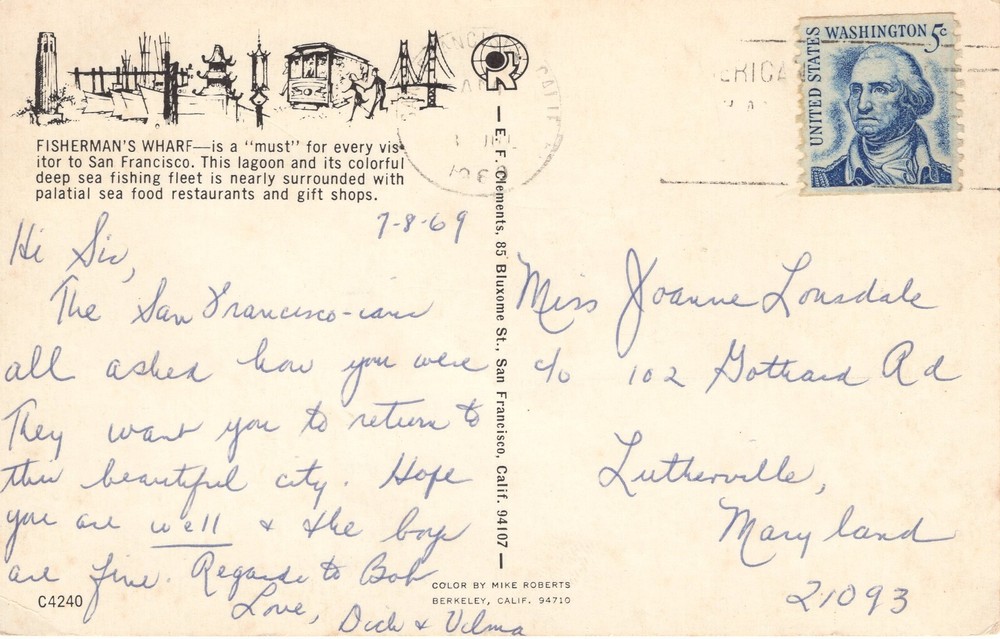 FISHERMAN'S WHARF—is a "must" for every vis-
itor to San Francisco. This lagoon and its colorful
deep sea fishing fleet is nearly surrounded with
palatial sea food restaurants and gift shops.
7-8-69
Hi Sis,
The San Francisco-ians
all asked how you were
They want you to return to
this beautiful city. Hope
you are well & the boys
are fine. Regards to Bob
Love, Dick & Velma
C4240
E. F. Clements, 85 Bluxome St., San Francisco, Calif. 94107
COLOR BY MIKE ROBERTS
BERKELEY, CALIF. 94710
UNITED STATES
WASHINGTON 5c
Miss Joanne Lonsdale
c/o 102 Gothard Rd
Lutherville,
Maryland
21093